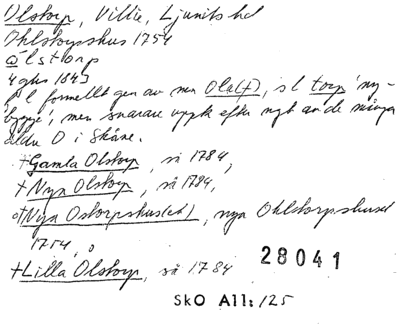 Olstorp, Villie, Ljunits hd
Ohlstorpshus 1754
Ølstorp
4 ghr 1843
fl formellt gen av mn Ola(f), sl torp 'ny-
bygge', men snarare uppk efter ngt av de många
äldre O i Skåne.
†Gamla Olstorp, så 1784,
†Nya Olstorp, så 1784,
o†Nya Ostorpshus(et), nya Ohlstorpshuset
1754, o
†Lilla Olstorp, så 1784
28041
SkO All: 125